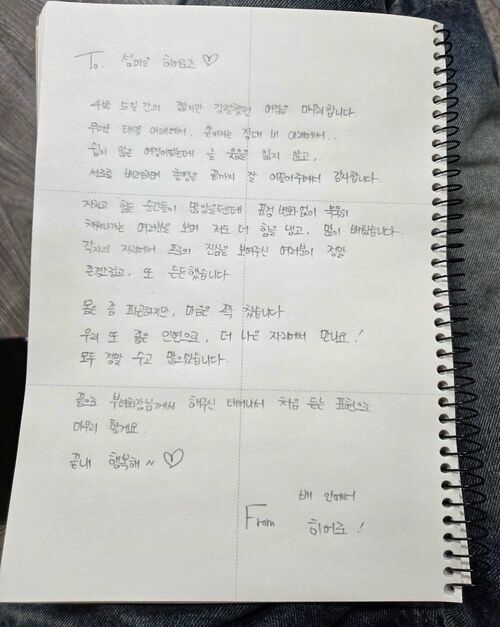 To. 섬마을 히어로즈 ♡
4박 5일 간의 짧지만 강렬했던 여정을 마무리합니다.
무더운 태양 아래에서, 쏟아지는 장대 비 아래에서..
쉽지 않은 여정이었는데 늘 웃음을 잃지 않고,
서로를 배려하며 촬영을 끝까지 잘 이끌어주셔서 감사합니다.
지치고 힘든 순간들이 많았을텐데 표정 변화 없이 묵묵히
채워나가는 여러분을 보며 저도 더 힘을 내고, 많이 배웠습니다.
각자의 자리에서 프로의 진심을 보여주신 여러분이 정말
존경스럽고, 또 든든했습니다.
몸은 좀 피곤하지만, 마음은 꽉 찼습니다.
우리 또 좋은 인연으로, 더 나은 자리에서 만나요!
모두 정말 수고 많으셨습니다.
끝으로 부녀회장님께서 해주신 태어나서 처음 듣는 표현으로
마무리 할게요.
끝내 행복해~ ♡
배 안에서
From. 히어로!